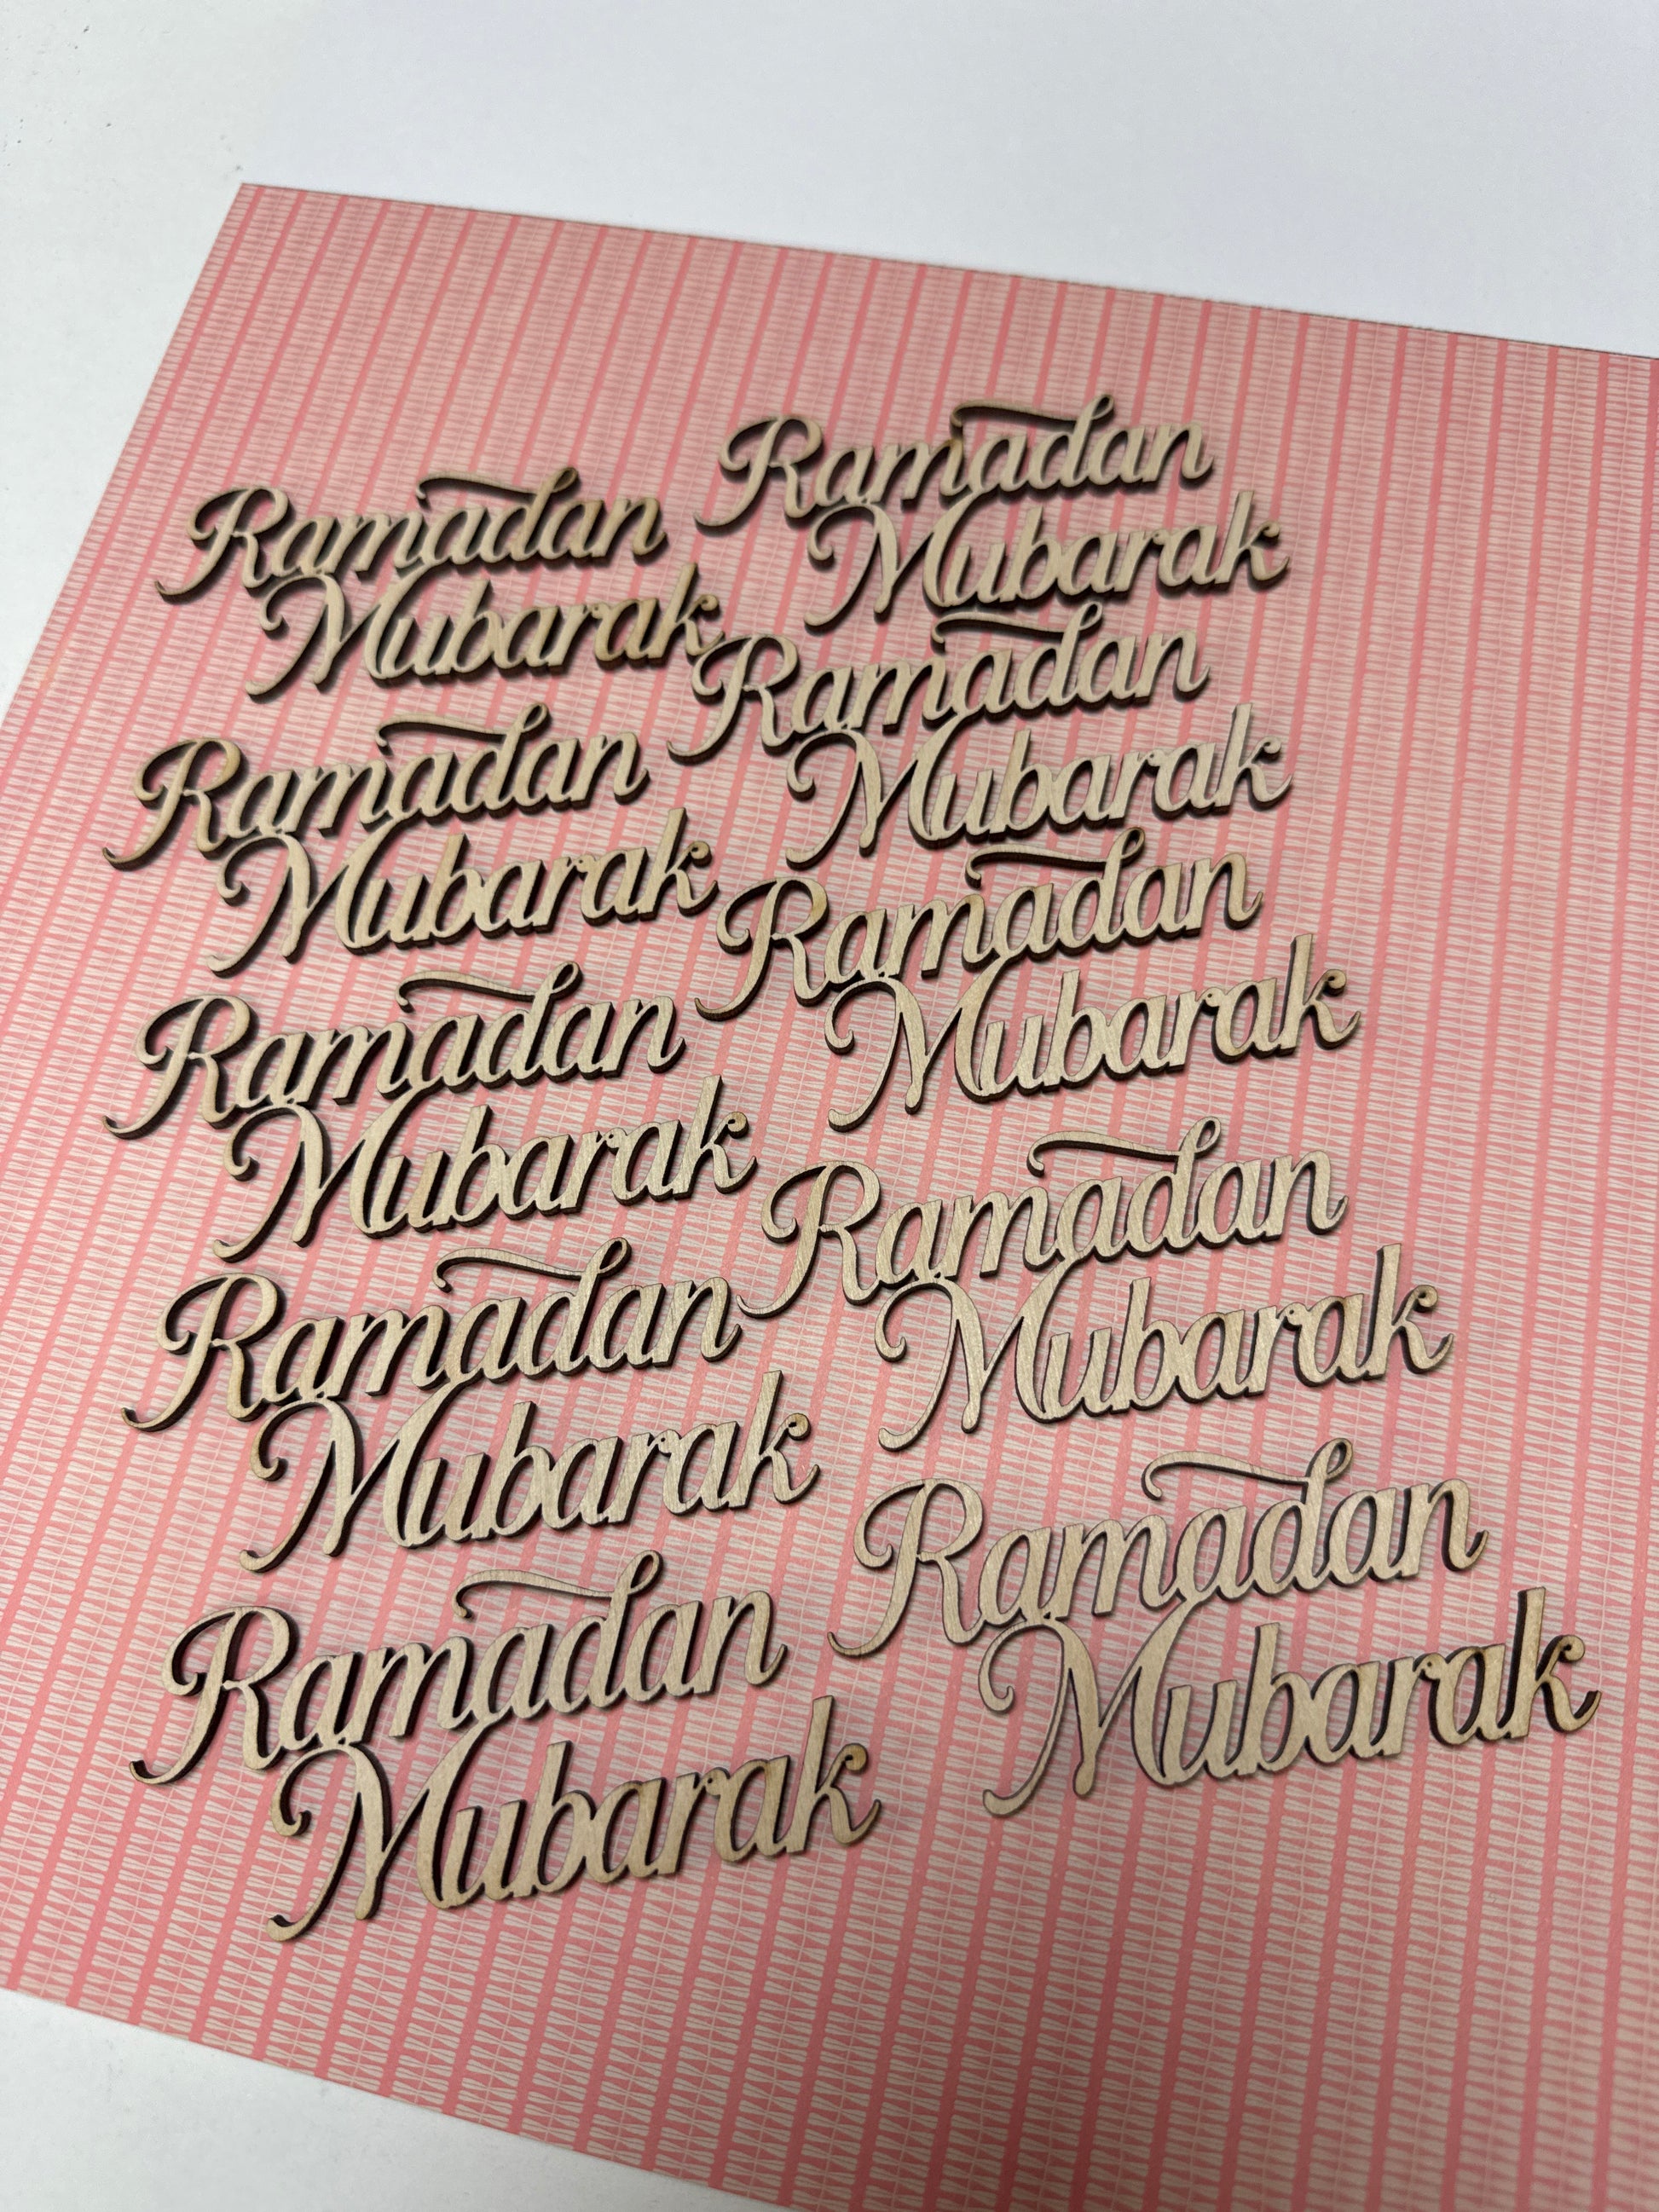 Ramadan
Mubarak
Ramadan
Mubarak
Ramadan
Mubarak
Ramadan
Mubarak
Ramadan
Mubarak
Ramadan
Mubarak
Ramadan
Mubarak
Ramadan
Mubarak
Ramadan
Mubarak
Ramadan
Mubarak